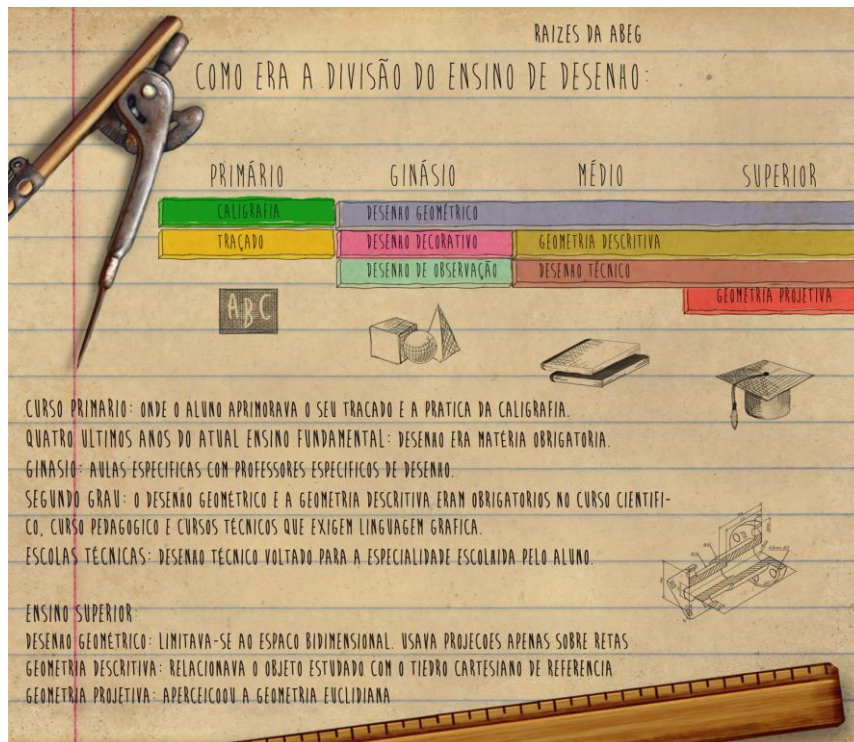 RAIZES DA ABEG
COMO ERA A DIVISÃO DO ENSINO DE DESENHO:
PRIMÁRIO GINÁSIO MÉDIO SUPERIOR
CALIGRAFIA DESENHO GEOMÉTRICO
TRAÇADO DESENHO DECORATIVO GEOMETRIA DESCRITIVA
DESENHO DE OBSERVAÇÃO DESENHO TÉCNICO
GEOMETRIA PROJETIVA
ABC
CURSO PRIMARIO: ONDE O ALUNO APRIMORAVA O SEU TRACADO E A PRATICA DA CALIGRAFIA.
QUATRO ULTIMOS ANOS DO ATUAL ENSINO FUNDAMENTAL: DESENHO ERA MATÉRIA OBRIGATORIA.
GINASIO: AULAS ESPECIFICAS COM PROFESSORES ESPECIFICOS DE DESENHO.
SEGUNDO GRAU: O DESENHO GEOMÉTRICO E A GEOMETRIA DESCRITIVA ERAM OBRIGATORIOS NO CURSO CIENTIFI-
CO, CURSO PEDAGOGICO E CURSOS TÉCNICOS QUE EXIGEM LINGUAGEM GRAFICA.
ESCOLAS TÉCNICAS: DESENHO TÉCNICO VOLTADO PARA A ESPECIALIDADE ESCOLHIDA PELO ALUNO.
ENSINO SUPERIOR:
DESENHO GEOMÉTRICO: LIMITAVA-SE AO ESPACO BIDIMENSIONAL. USAVA PROJECOES APENAS SOBRE RETAS
GEOMETRIA DESCRITIVA: RELACIONAVA O OBJETO ESTUDADO COM O TIEDRO CARTESIANO DE REFERENCIA
GEOMETRIA PROJETIVA: APERCEICOOU A GEOMETRIA EUCLIDIANA